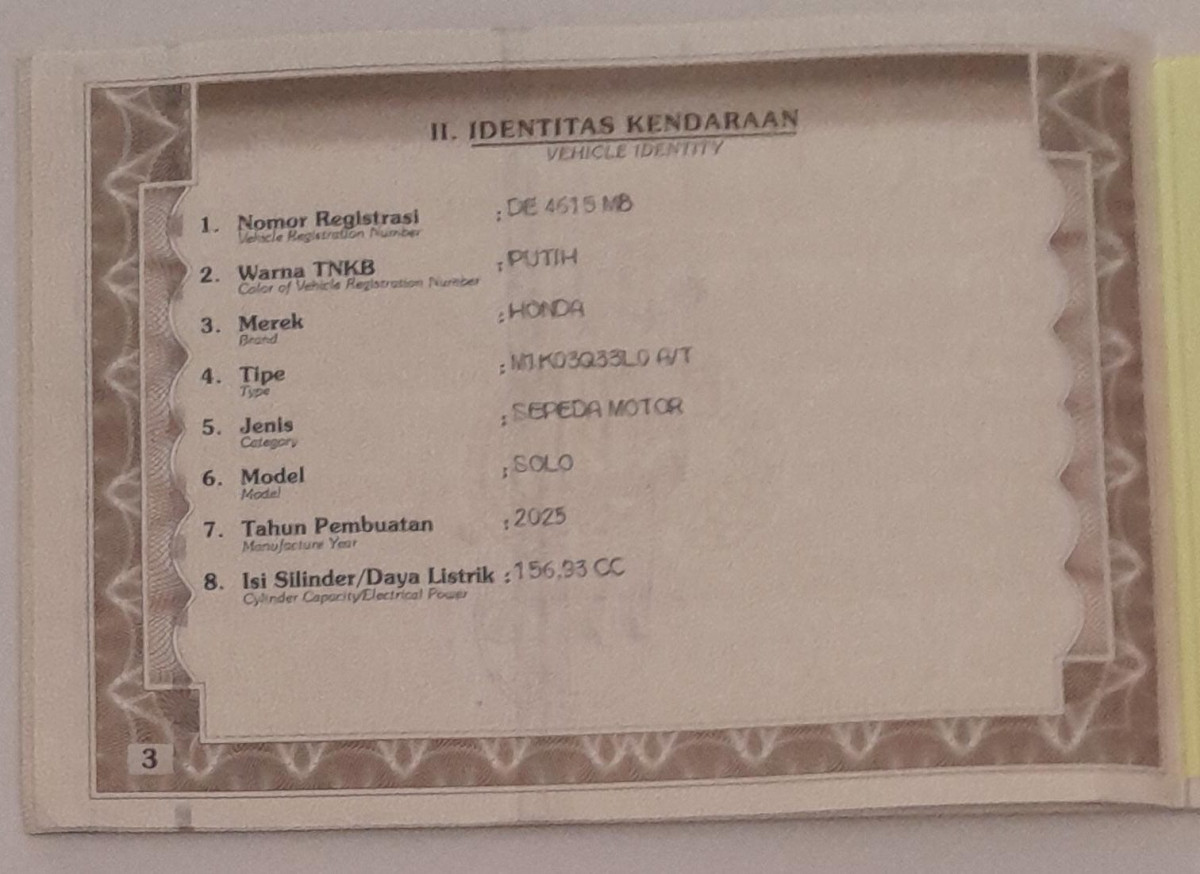 II. IDENTITAS KENDARAAN
VEHICLE IDENTITY
1. Nomor Registrasi : DE 4615 MB
Vehicle Registration Number
2. Warna TNKB : PUTIH
Color of Vehicle Registration Number
3. Merek : HONDA
Brand
4. Tipe : M1K03Q33L0 A/T
Type
5. Jenis : SEPEDA MOTOR
Category
6. Model : SOLO
Model
7. Tahun Pembuatan : 2025
Manufacture Year
8. Isi Silinder/Daya Listrik : 156,93 CC
Cylinder Capacity/Electrical Power
3